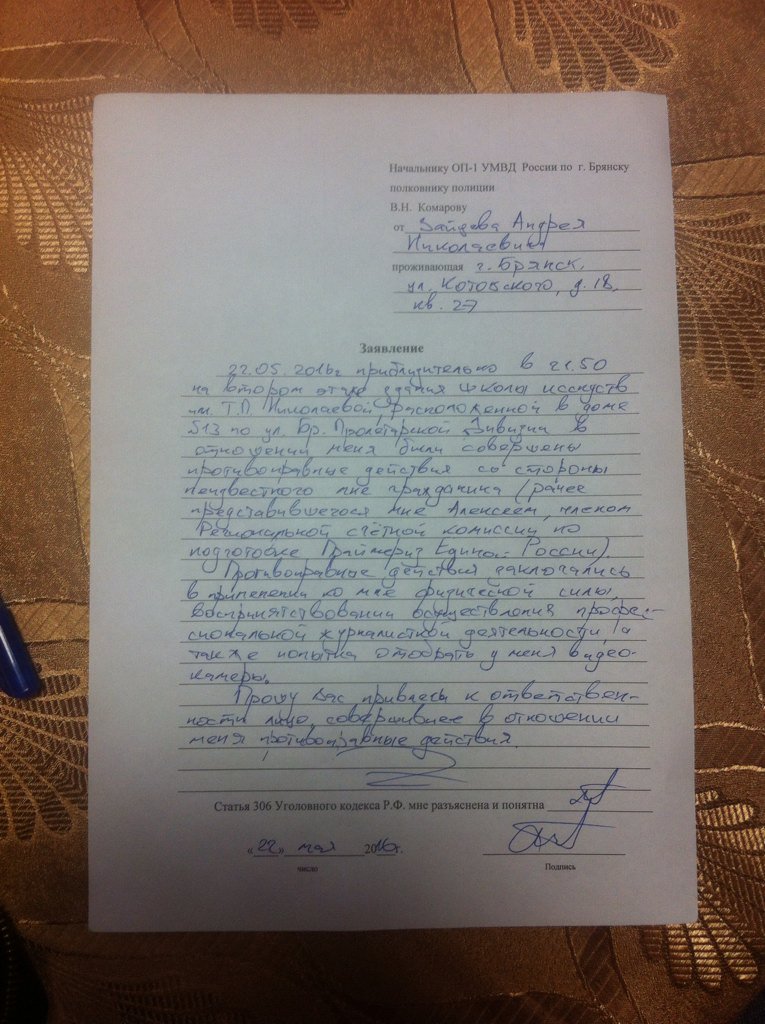 Начальнику ОП-1 УМВД России по г. Брянску
полковнику полиции
В.Н. Комарову
от Зайцева Андрея
Николаевича
проживающая г. Брянск,
ул. Котовского, д. 18,
кв. 27
Заявление
22.05.2016г приблизительно в 21.50
на втором этаже здания школы исскуств
им. Т.П. Николаевой, расположенной в доме
№13 по ул. Бр. Пролетарской Дивизии в
отношении меня были совершены
противоправные действия со стороны
неизвестного мне гражданина (ранее
представившегося мне Алексеем, членом
Региональной счётной комиссии по
подготовке Праймериз Единой России).
Противоправные действия заключались
в применении ко мне физической силы,
воспринятствовании осуществления профес-
сиональной журналисткой деятельности, а
также попытка отобрать у меня видео-
камеры.
Прошу вас привлечь к ответствен-
ности лицо, совершившее в отношении
меня противоправные действия.
Статья 306 Уголовного кодекса Р.Ф. мне разъяснена и понятна
«22» мая 2016г.
число
Подпись